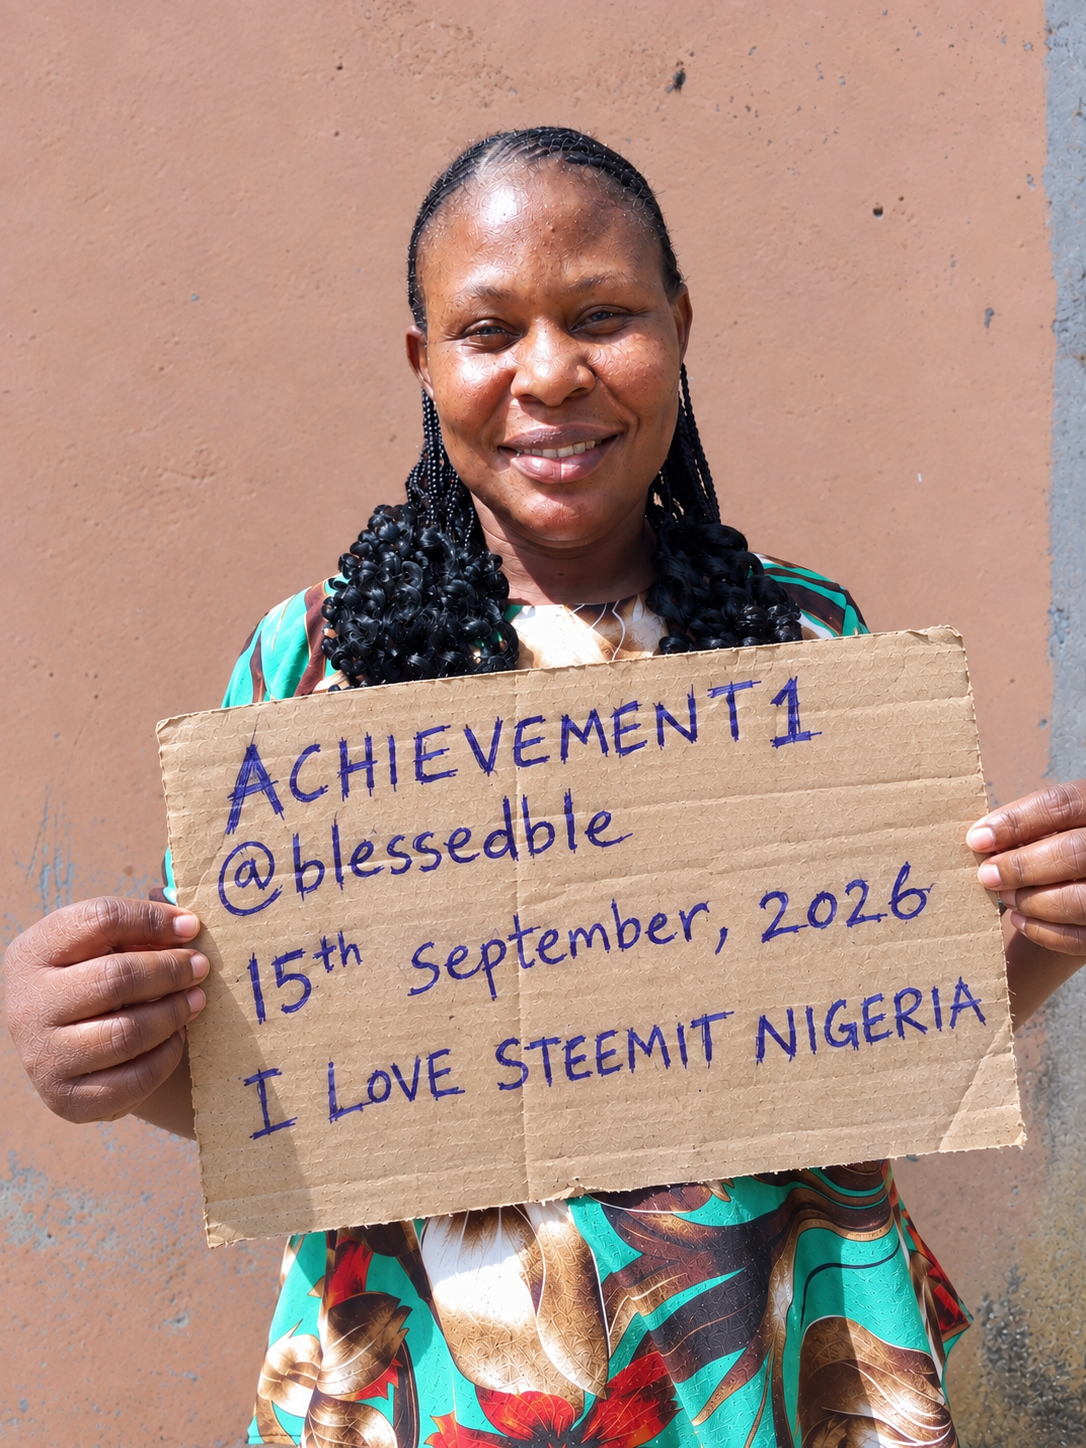 ACHIEVEMENT 1
@blessedble
15th September, 2026
I LOVE STEEMIT NIGERIA